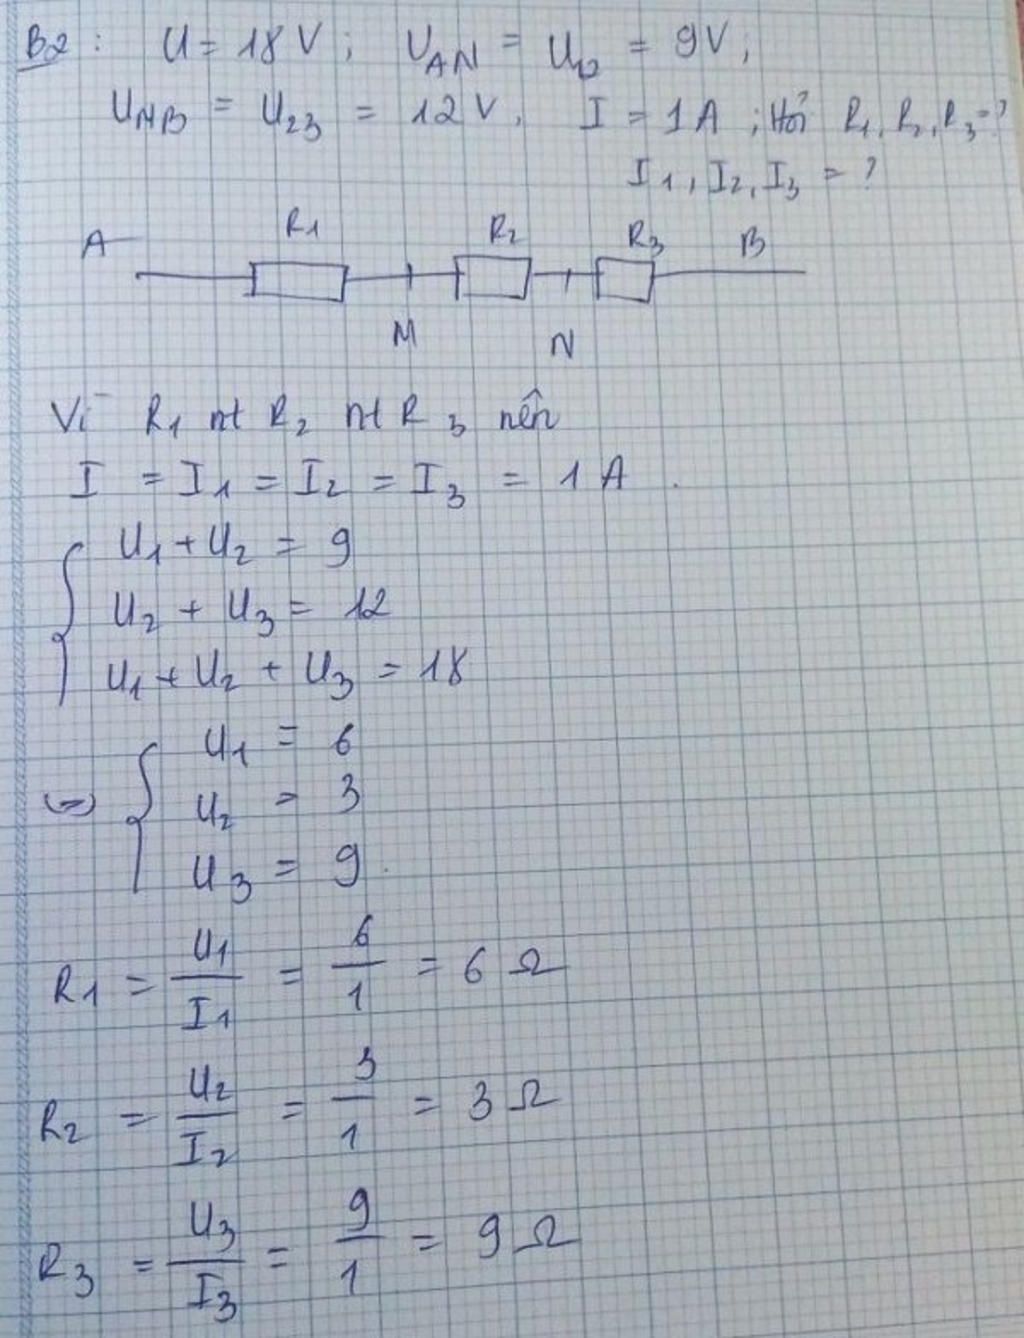 B2 : U = 18 V ; U_AN = U_12 = 9V ;
U_NB = U_23 = 12 V , I = 1 A ; Hỏi R1, R2, R3 = ?
I1, I2, I3 = ?
A R1 R2 R3 B
M N
Vì R1 nt R2 nt R3 nên
I = I1 = I2 = I3 = 1 A .
U1 + U2 = 9
U2 + U3 = 12
U1 + U2 + U3 = 18
(=) U1 = 6
U2 = 3
U3 = 9 .
R1 = U1/I1 = 6/1 = 6 Ω
R2 = U2/I2 = 3/1 = 3 Ω
R3 = U3/I3 = 9/1 = 9 Ω